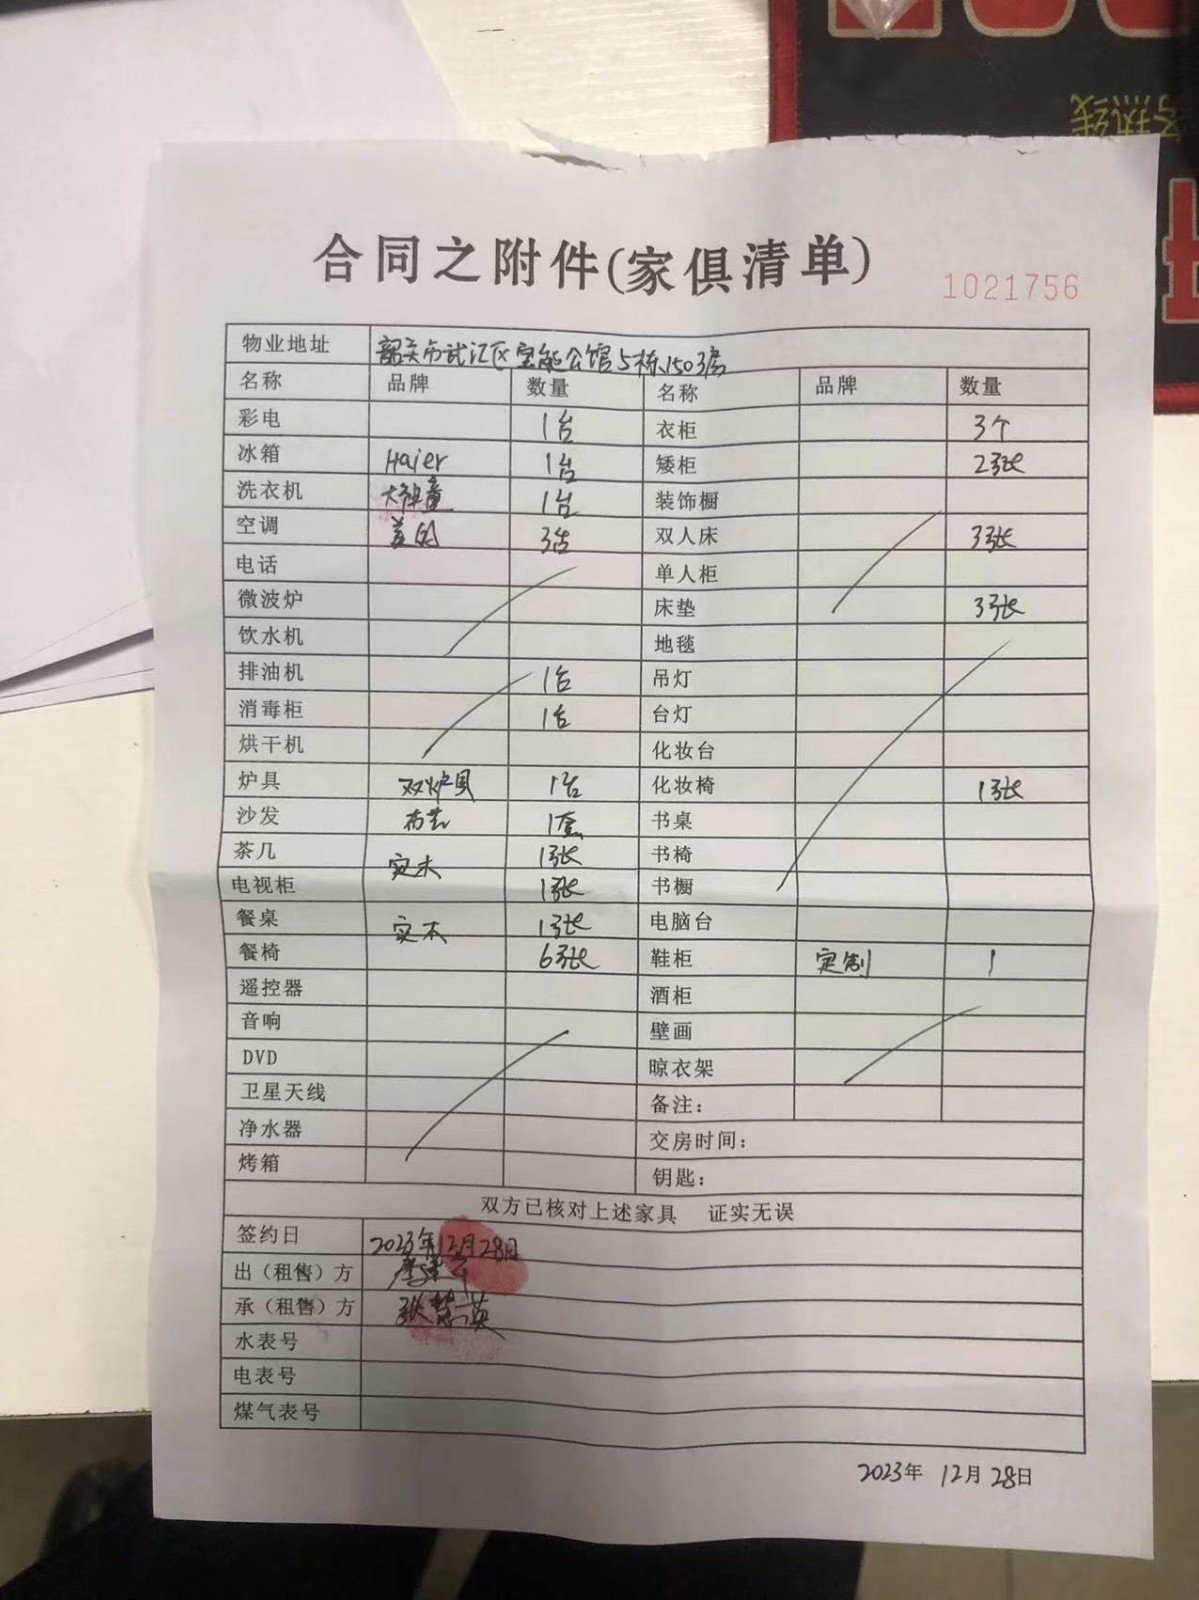 务热线
合同之附件(家俱清单)
1021756
物业地址 韶关市武江区宝能公馆5栋1503房
名称 品牌 数量 名称 品牌 数量
彩电 1台 衣柜 3个
冰箱 Haier 1台 矮柜 2张
洗衣机 1台 装饰橱
空调 美的 3台 双人床 3张
电话 单人柜
微波炉 床垫 3张
饮水机 地毯
排油机 1台 吊灯
消毒柜 1台 台灯
烘干机 化妆台
炉具 双炉具 1台 化妆椅 1张
沙发 布艺 1套 书桌
茶几 实木 1张 书椅
电视柜 1张 书橱
餐桌 实木 1张 电脑台
餐椅 6张 鞋柜 定制 1
遥控器 酒柜
音响 壁画
DVD 晾衣架
卫星天线 备注:
净水器 交房时间:
烤箱 钥匙:
双方已核对上述家具 证实无误
签约日 2023年12月28日
出（租售）方
承（租售）方 张慧英
水表号
电表号
煤气表号
2023年 12月 28日